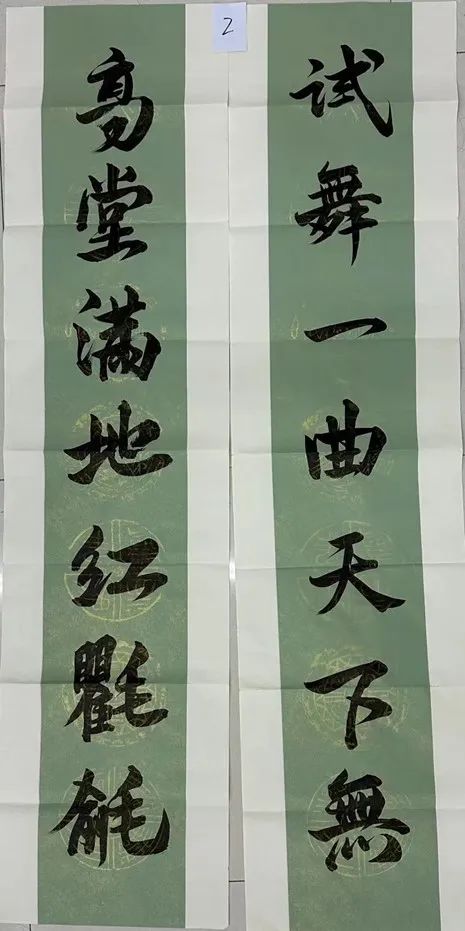 2
高堂滿地紅氍毹
試舞一曲天下無